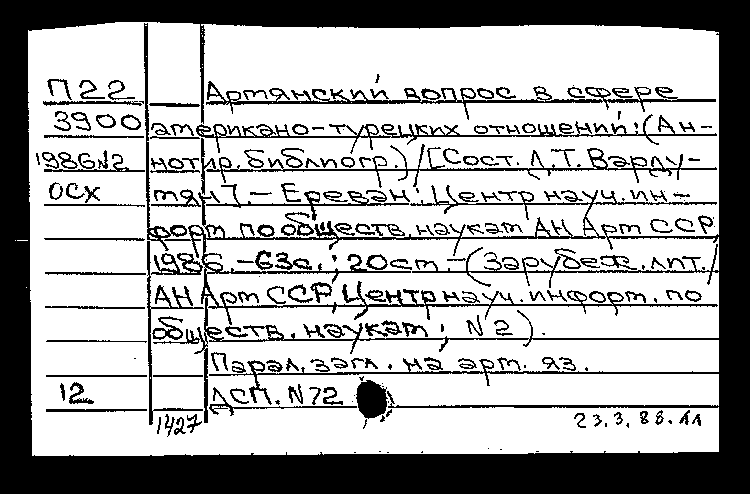 П22 Армянский вопрос в сфере
3900 американо-турецких отношений: (Ан-
1986№2 нотир. библиогр.) / [Сост. Л.Т. Варду-
ОСХ мян]. – Ереван: Центр науч. ин-
форм. по обществ. наукам АН Арм ССР,
1986. – 63с.; 20см. – (Зарубеж. лит. /
АН Арм ССР, Центр науч. информ. по
обществ. наукам; N2).
Парал. загл. на арм. яз.
12 ДСП. N72
1427 23.3.88.